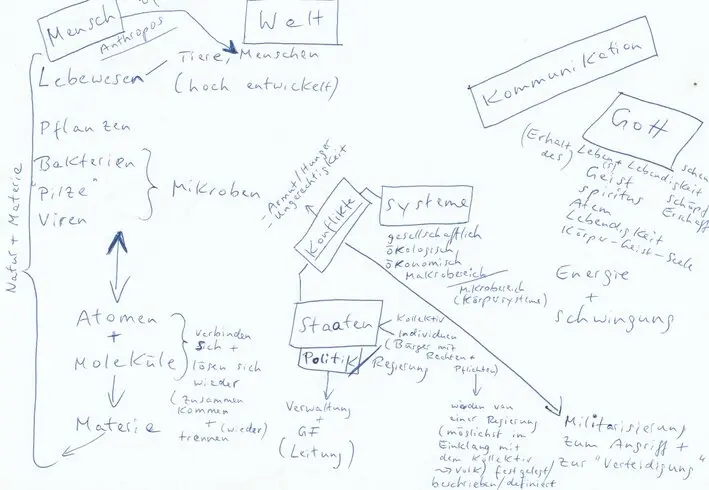 Mensch
Anthropos
Welt
Lebewesen
Tiere, Menschen
(hoch entwickelt)
Pflanzen
Bakterien
"Pilze"
Viren
Mikroben
Natur + Materie
Atomen
+
Moleküle
verbinden
sich +
lösen sich
wieder
(zusammen
kommen
+ (wieder)
trennen
Materie
- Armut/Hunger
- Ungerechtigkeit
Konflikte
Systeme
gesellschaftlich
ökologisch
ökonomisch
Makrobereich
Mikrobereich
(Körpersysteme)
Staaten
Politik
Kollektiv
Individuen
(Bürger mit
Rechten +
Pflichten)
Regierung
Verwaltung
+
GF
(Leitung)
werden von
einer Regierung
(möglichst im
Einklang mit
dem Kollektiv
→ Volk) festgelegt/
beschrieben/definiert
Militarisierung
zum Angriff +
zur "Verteidigung"
Kommunikation
Gott
(Erhalt Leben + Lebendigkeit
des)
Geist
spiritus
Atem
Lebendigkeit
Körper-Geist-Seele
Energie
+
Schwingung